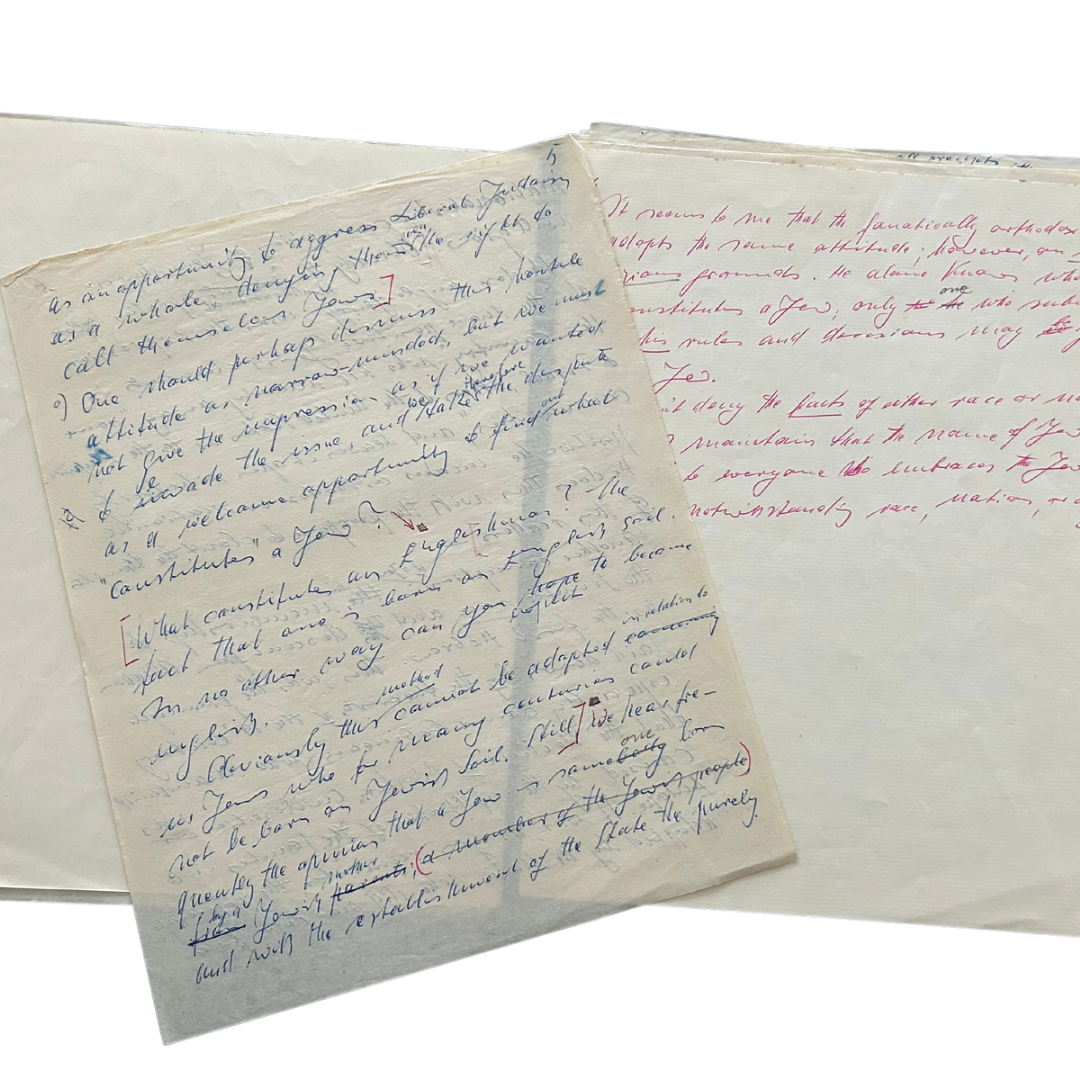 5
as an opportunity to aggress Liberal Judaism
as a whole, denying them the right to
call themselves Jews.]
o) One should perhaps dismiss this hostile
attitude as narrow-minded, but we must
not give the impression as if we wanted
to evade the issue, and we therefore take the dispute
as a welcome opportunity to find out what
"constitutes" a Jew?
[What constitutes an Englishman? The
fact that one is born on English soil.
In no other way can you hope to become
english.
Obviously this method cannot be adopted in relation to concerning
us Jews who for many centuries could
not be born on Jewish soil. Still] we hear fre-
quently the opinion that a Jew is somebody one born
from by a Jewish parents mother, (a member of the Jewish people)
and with the establishment of the State the purely
all precepts
It seems to me that the fanatically orthodox
adopts the same attitude; however, on
grounds. He alone knows wha
constitutes a Jew, only one who sub
his rules and decisions may be
Jew.
deny the facts of either race or
maintain that the name of Jew
to everyone who embraces the Jew
notwithstanding race, nation, or